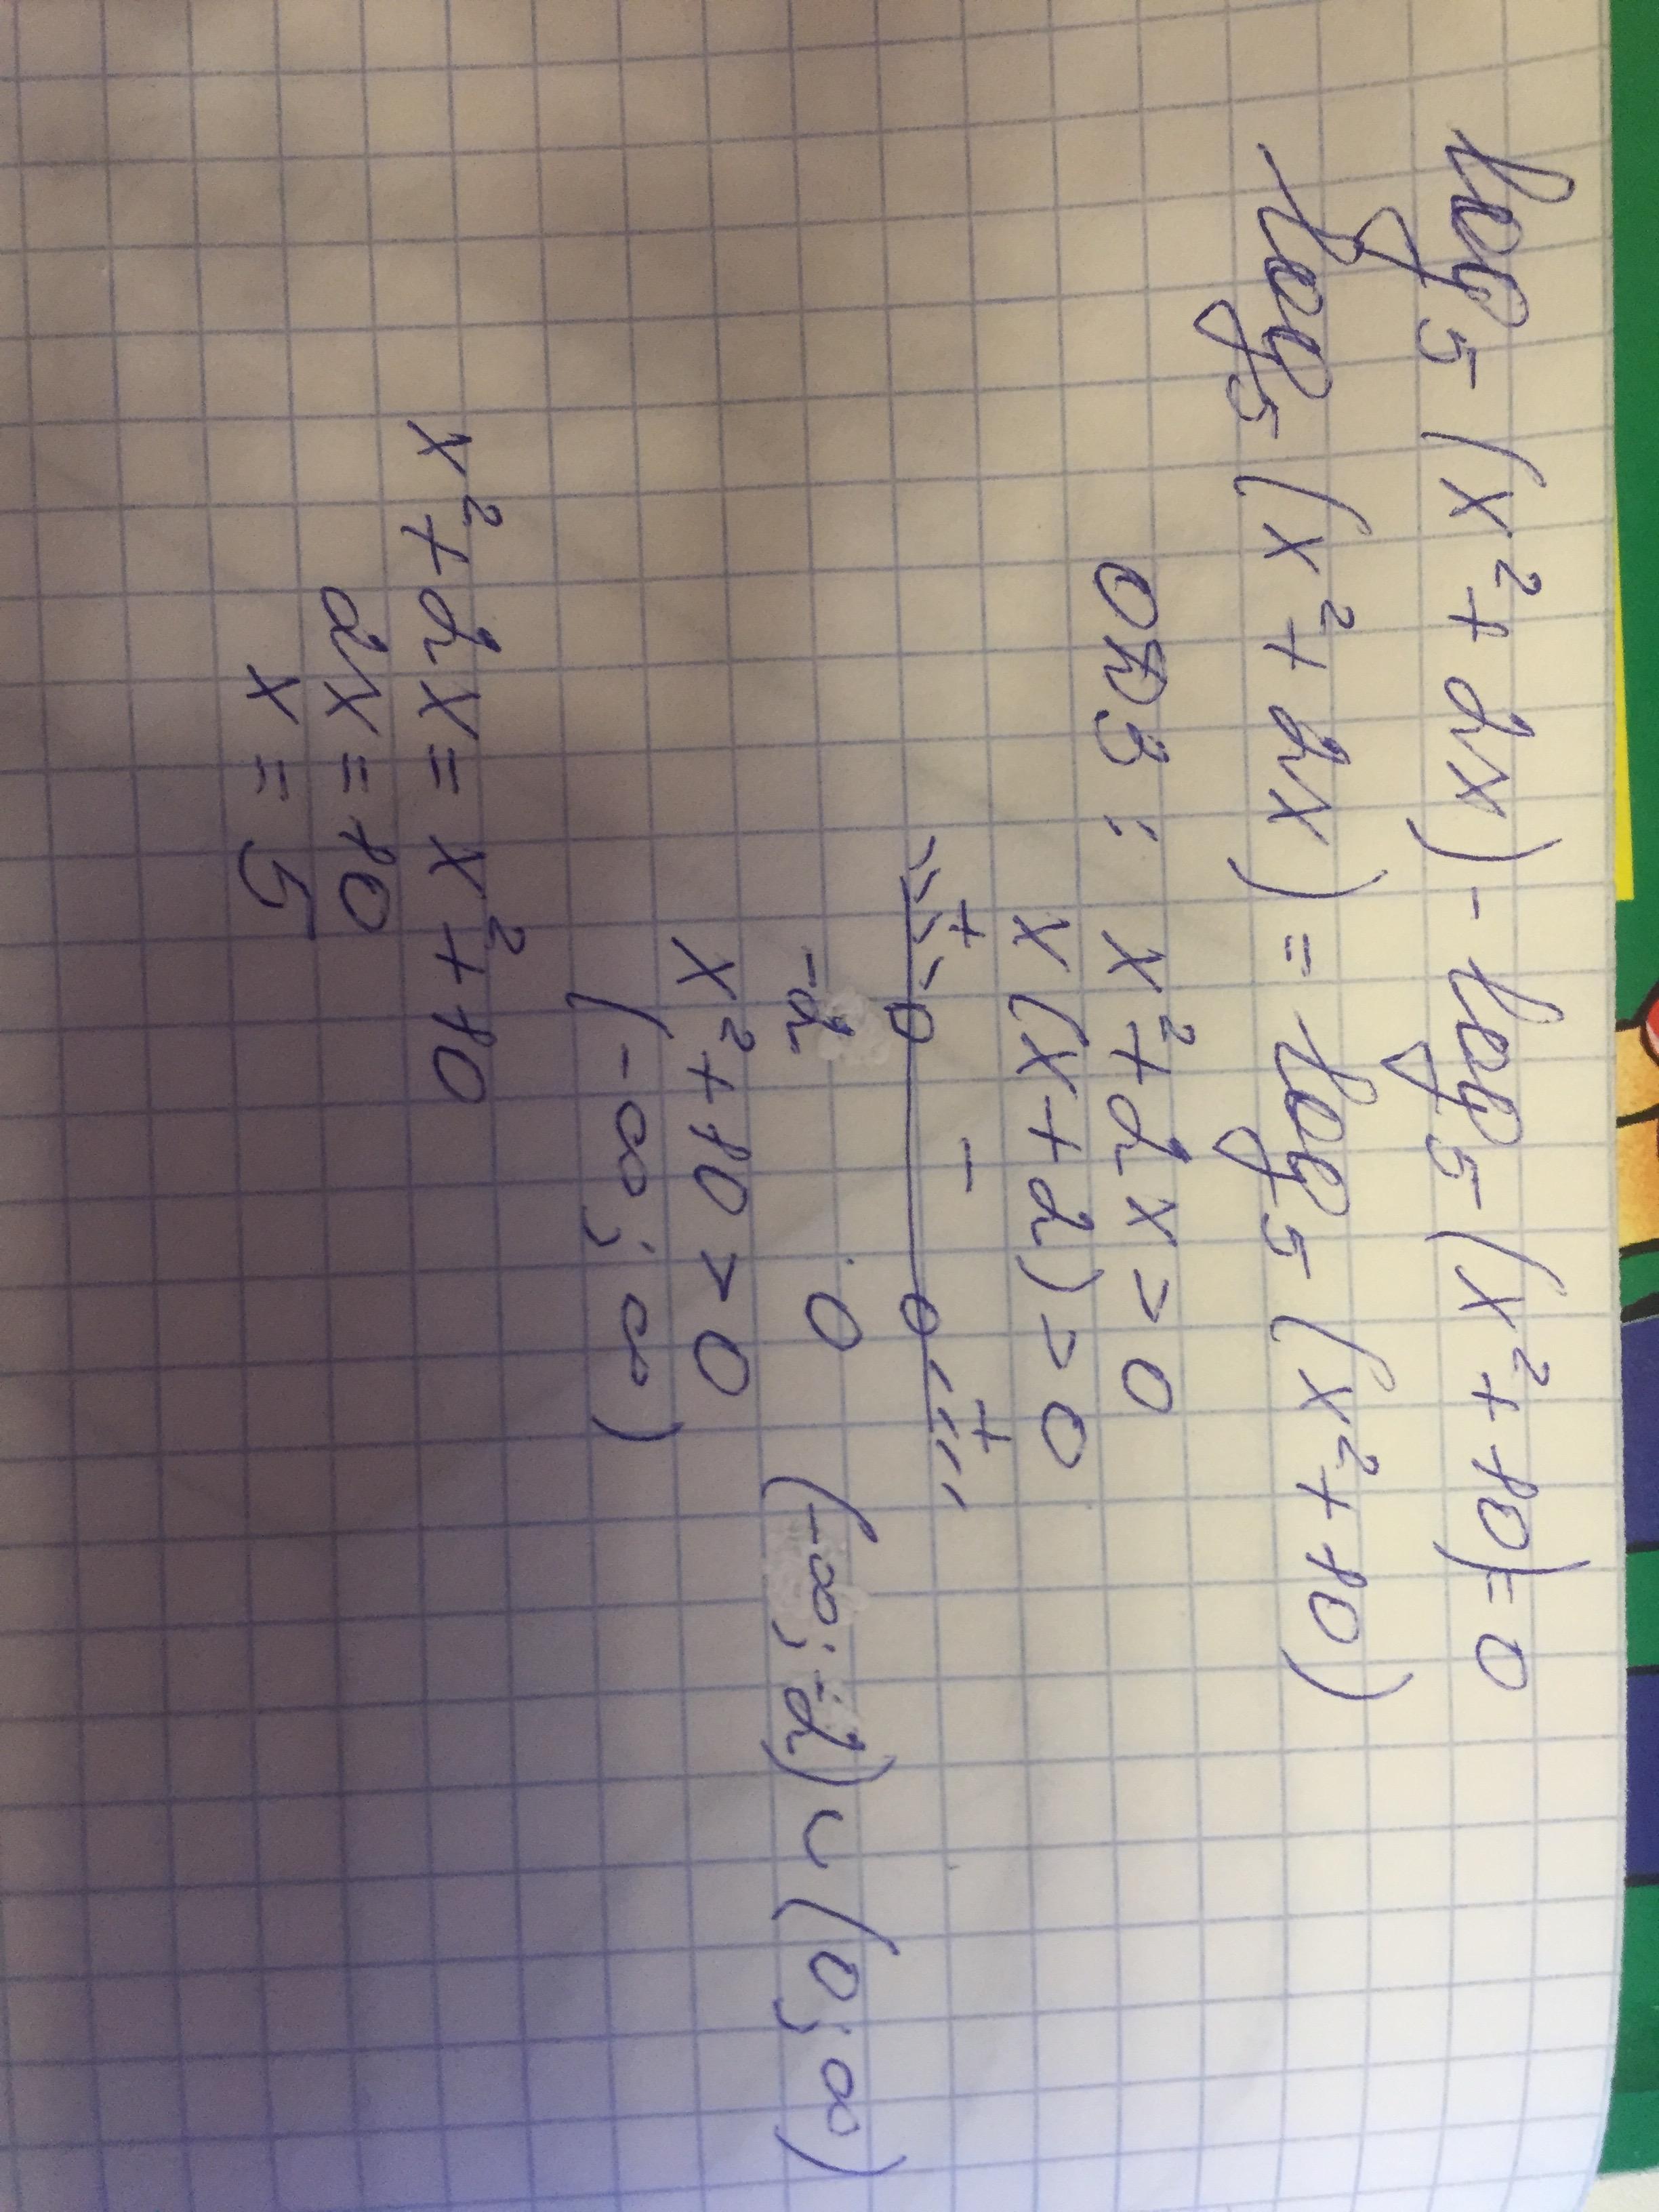 log₅(x²+2x)-log₅(x²+10)=0
log₅(x²+2x)=log₅(x²+10)
ОДЗ: x²+2x>0
x(x+2)>0
+ - +
-2 0 (-∞;-2)∪(0;∞)
x²+10>0
(-∞;∞)
x²+2x=x²+10
2x=10
x=5